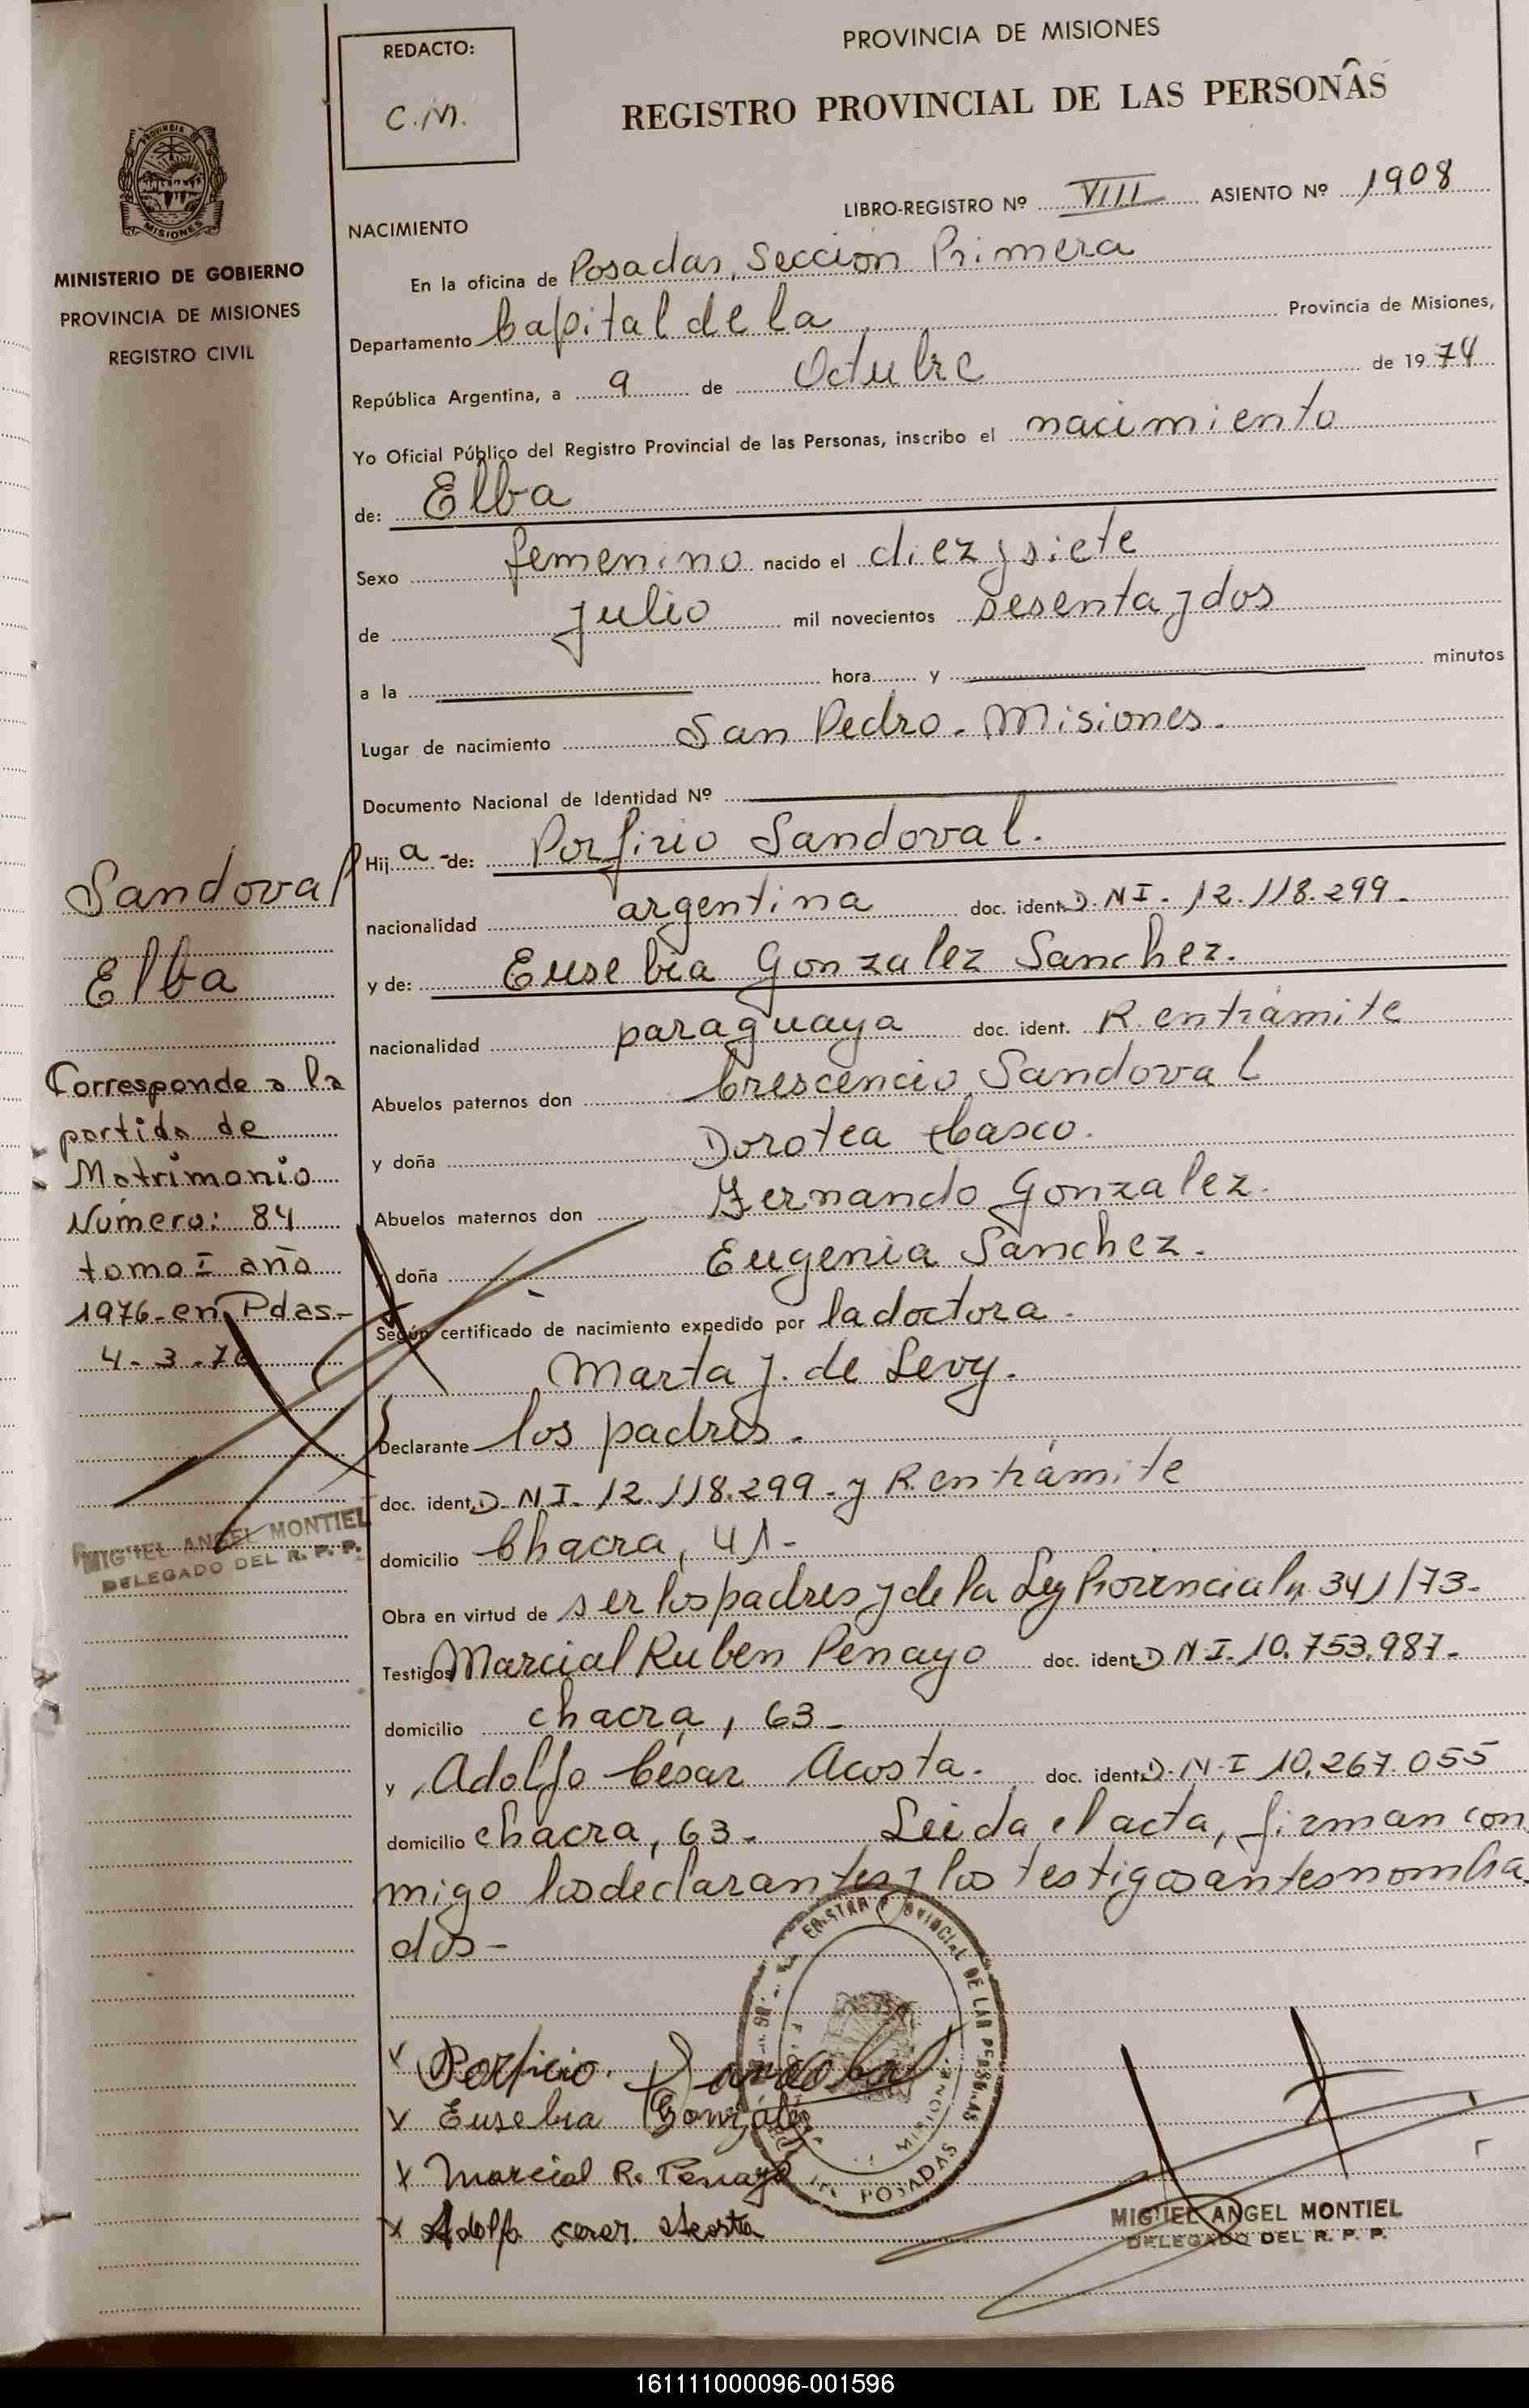 REDACTO:
C.M.
PROVINCIA DE MISIONES
REGISTRO PROVINCIAL DE LAS PERSONAS
LIBRO-REGISTRO Nº VIII ASIENTO Nº 1908
NACIMIENTO
En la oficina de Posadas, Sección Primera
Departamento Capital de la Provincia de Misiones,
República Argentina, a 9 de Octubre de 1974
Yo Oficial Público del Registro Provincial de las Personas, inscribo el nacimiento
de: Elba
Sexo femenino nacido el diez y siete
de julio mil novecientos sesenta y dos
a la hora y minutos
Lugar de nacimiento San Pedro - Misiones.
Documento Nacional de Identidad Nº
Hija de: Porfirio Sandoval.
nacionalidad argentina doc. ident. D.N.I. 12.118.299.
y de: Eusebia Gonzalez Sanchez.
nacionalidad paraguaya doc. ident. R. en trámite
Abuelos paternos don Crescencio Sandoval
y doña Dorotea Casco.
Abuelos maternos don Fernando Gonzalez.
y doña Eugenia Sanchez.
Según certificado de nacimiento expedido por la doctora
Marta J. de Levy.
Declarante los padres.
doc. ident. D.N.I. 12.118.299. y R. en trámite
domicilio Chacra, 41-
Obra en virtud de ser los padres y de la Ley Provincial n. 341/73-
Testigos Marcial Ruben Penayo doc. ident. D.N.I. 10.753.987-
domicilio chacra, 63-
y Adolfo César Acosta. doc. ident. D.N.I 10.267.055
domicilio chacra, 63- Leida el acta, firman con
migo los declarantes y los testigos antes nombra
dos-
x Porfirio Sandobal
x Eusebia González
x Marcial R. Penayo
x Adolfo cesar Acosta
POSADAS
MISIONES
MIGUEL ANGEL MONTIEL
DELEGADO DEL R. P. P.
PROVINCIA DE
MISIONES
MINISTERIO DE GOBIERNO
PROVINCIA DE MISIONES
REGISTRO CIVIL
Sandoval
Elba
Corresponde a la
partida de
Matrimonio
Número: 84
tomo I año
1976- en Pdas.-
4-3-76
MIGUEL ANGEL MONTIEL
DELEGADO DEL R. P. P.
161111000096-001596